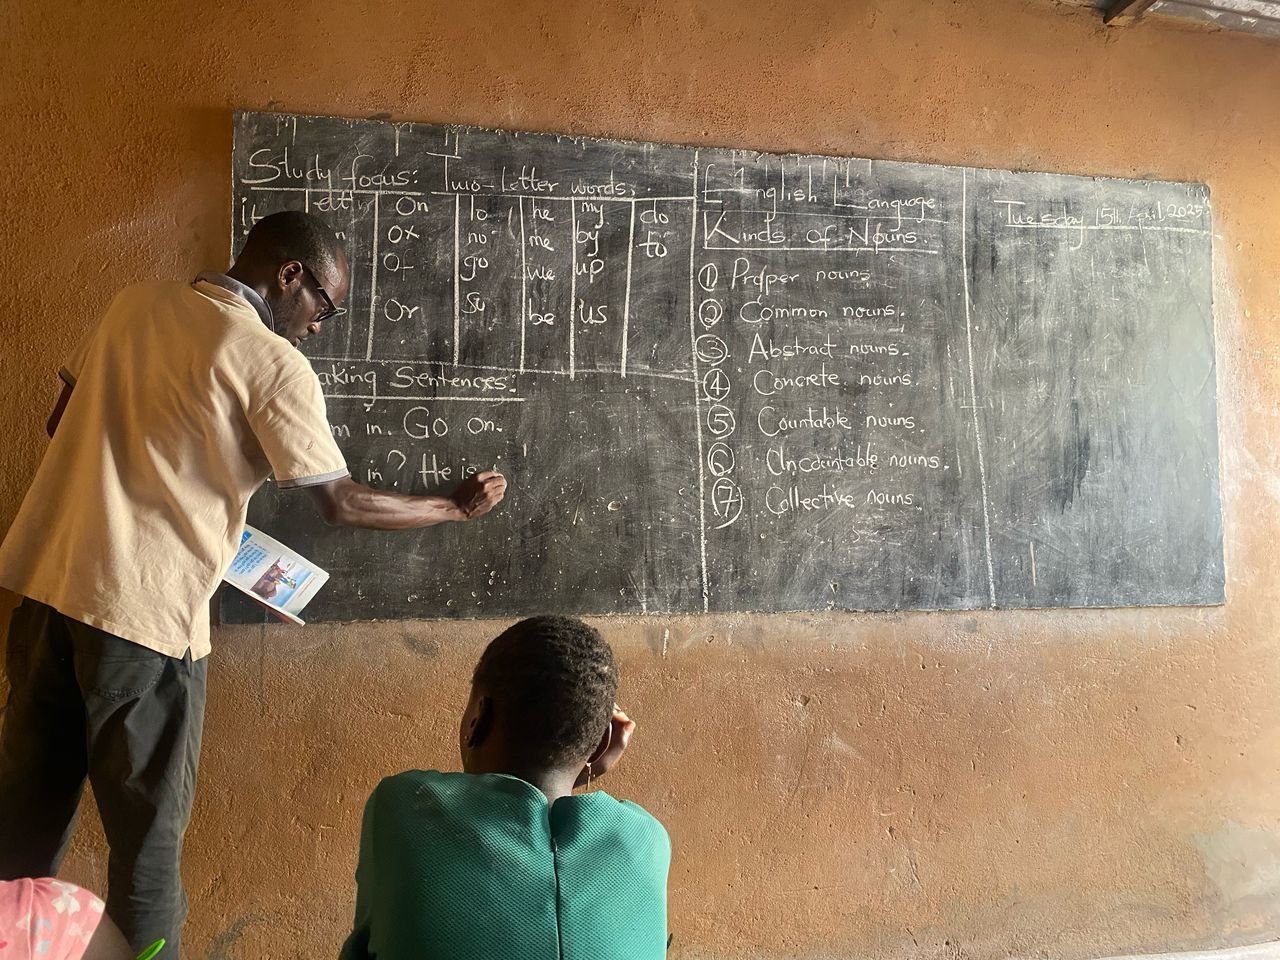 Study focus: Two-Letter words.
it On to he my do
ox no me by to
of go we up
or so be us
aking Sentences:
m in. Go on.
in? He is i
English Language
Kinds of Nouns.
1 Proper nouns
2 Common nouns.
3. Abstract nouns.
4 Concrete nouns.
5 Countable nouns.
6 Uncountable nouns.
7 Collective nouns.
Tuesday 15th April, 2025